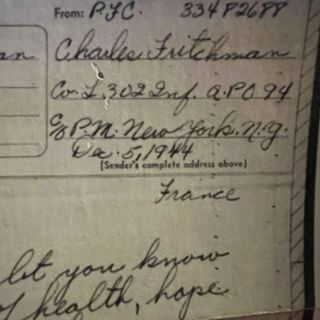 From: P.F.C. 33482688
an Charles Fritchman
Co. L. 302 Inf. A.P.O 94
c/o P.M. New York. N.Y.
De. 5, 1944
(Sender's complete address above)
France
let you know
of health, hope